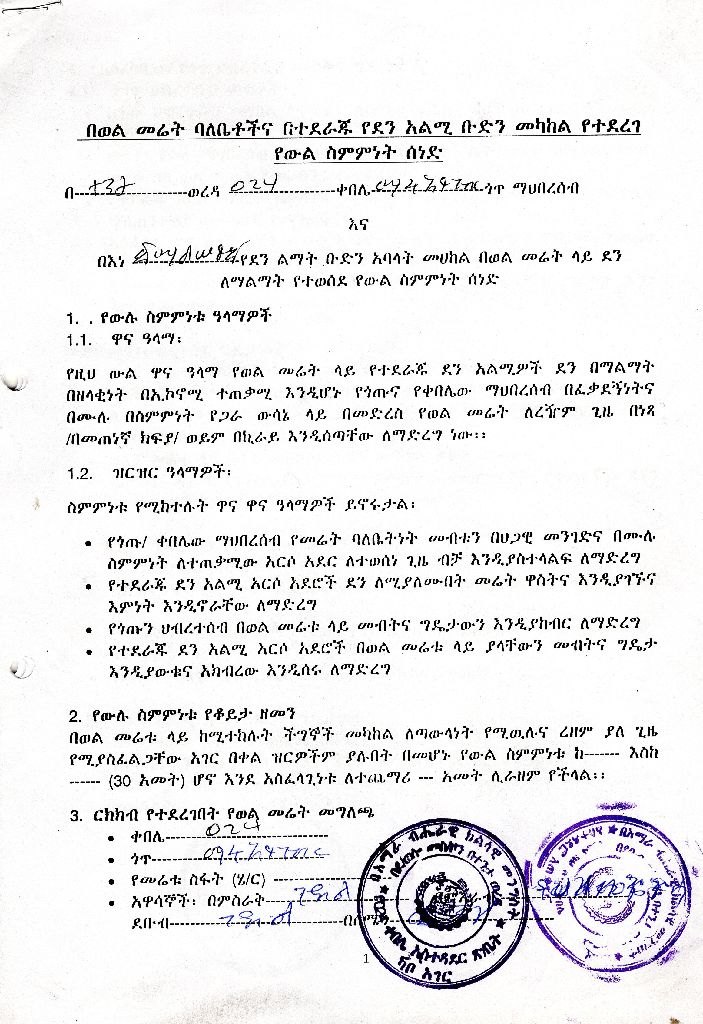 በወል መሬት ባለቤቶችና በተደራጁ የደን አልሚ ቡድን መካከል የተደረገ
የውል ስምምነት ሰነድ
በ---------ወረዳ 024-----------ቀበሌ ጎጥ ማህበረሰብ
እና
በእነ የደን ልማት ቡድን አባላት መሀከል በወል መሬት ላይ ደን
ለማልማት የተወሰደ የውል ስምምነት ሰነድ
1. . የውሉ ስምምነቱ ዓላማዎች
1.1. ዋና ዓላማ፡
የዚህ ውል ዋና ዓላማ የወል መሬት ላይ የተደራጁ ደን አልሚዎች ደን በማልማት
በዘላቂነት በኢኮኖሚ ተጠቃሚ እንዲሆኑ የጎጡና የቀበሌው ማህበረሰብ በፈቃደኝነትና
በሙሉ በስምምነት የጋራ ውሳኔ ላይ በመድረስ የወል መሬት ለረዥም ጊዜ በነጻ
/በመጠነኛ ክፍያ/ ወይም በኪራይ እንዲሰጣቸው ለማድረግ ነው፡፡
1.2. ዝርዝር ዓላማዎች፡
ስምምነቱ የሚከተሉት ዋና ዋና ዓላማዎች ይኖሩታል፡
• የጎጡ/ ቀበሌው ማህበረሰብ የመሬት ባለቤትነት መብቱን በህጋዊ መንገድና በሙሉ
ስምምነት ለተጠቃሚው አርሶ አደር ለተወሰነ ጊዜ ብቻ እንዲያስተላልፍ ለማድረግ
• የተደራጁ ደን አልሚ አርሶ አደሮች ደን ለሚያለሙበት መሬት ዋስትና እንዲያገኙና
እምነት እንዲኖራቸው ለማድረግ
• የጎጡን ህብረተሰብ በወል መሬቱ ላይ መብትና ግዴታውን እንዲያከብር ለማድረግ
• የተደራጁ ደን አልሚ አርሶ አደሮች በወል መሬቱ ላይ ያላቸውን መብትና ግዴታ
እንዲያውቁና አክብረው እንዲሰሩ ለማድረግ
2. የውሉ ስምምነቱ የቆይታ ዘመን
በወል መሬቱ ላይ ከሚተከሉት ችግኞች መካከል ለጣውላነት የሚዉሉና ረዘም ያለ ጊዜ
የሚያስፈልጋቸው አገር በቀል ዝርዎችም ያሉበት በመሆኑ የውል ስምምነቱ ከ------- እስከ
------ (30 አመት) ሆኖ እንደ አስፈላጊነቱ ለተጨማሪ --- አመት ሊራዘም የችላል፡፡
3. ርክክብ የተደረገበት የወል መሬት መግለጫ
• ቀበሌ------024-----------
• ጎጥ
• የመሬቱ ስፋት (ሄ/ር) --------------
• አዋሳኞች፡ በምስራት
ደቡብ በሰሜን
1